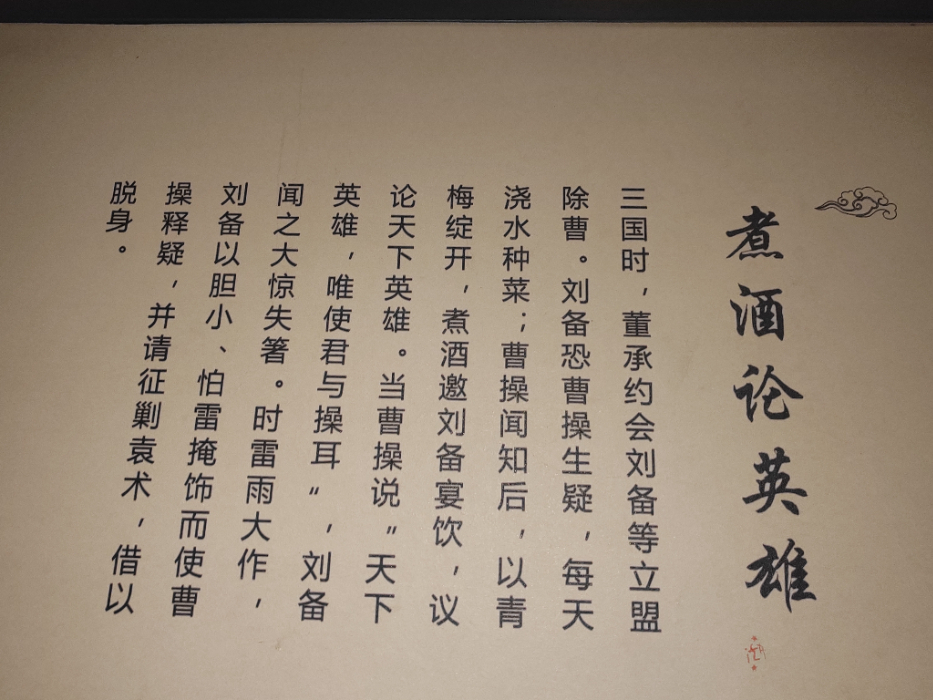 煮酒论英雄
三国时，董承约会刘备等立盟
除曹。刘备恐曹操生疑，每天
浇水种菜；曹操闻知后，以青
梅绽开，煮酒邀刘备宴饮，议
论天下英雄。当曹操说“天下
英雄，唯使君与操耳“，刘备
闻之大惊失箸。时雷雨大作，
刘备以胆小、怕雷掩饰而使曹
操释疑，并请征剿袁术，借以
脱身。